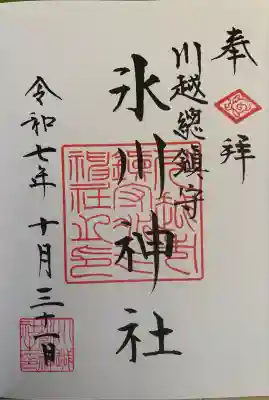 奉拝
川越總鎮守
氷川神社
令和七年十月三十一日